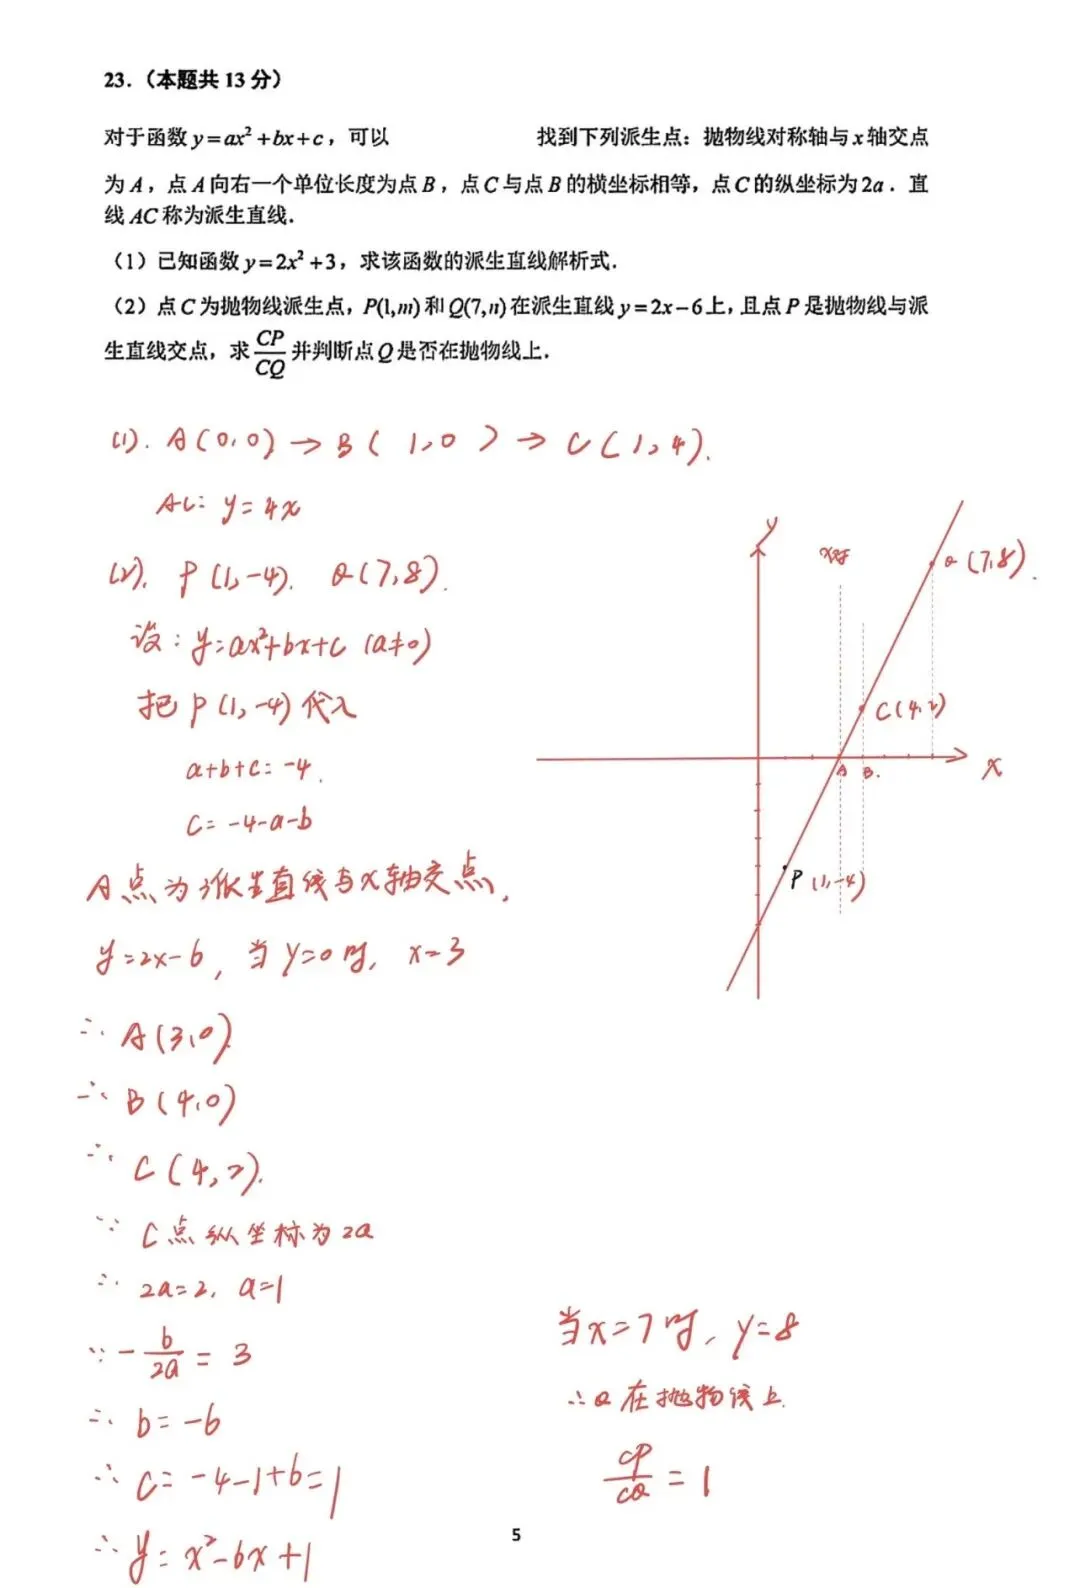 23.（本题共 13 分）
对于函数 y=ax²+bx+c，可以 找到下列派生点：抛物线对称轴与 x 轴交点
为 A，点 A 向右一个单位长度为点 B，点 C 与点 B 的横坐标相等，点 C 的纵坐标为 2a．直
线 AC 称为派生直线．
（1）已知函数 y=2x²+3，求该函数的派生直线解析式．
（2）点 C 为抛物线派生点，P(1,m) 和 Q(7,n) 在派生直线 y=2x−6 上，且点 P 是抛物线与派
生直线交点，求 CP/CQ 并判断点 Q 是否在抛物线上．
(1). A(0,0) → B(1,0) → C(1,4).
AC: y=4x
(2). P(1,-4). Q(7,8).
设: y=ax²+bx+c (a≠0)
把 P(1,-4) 代入
a+b+c=-4.
c=-4-a-b
A点为派生直线与x轴交点,
y=2x-6, 当 y=0时, x=3
∴ A(3,0)
∴ B(4,0)
∴ C(4,2).
∵ C点纵坐标为2a
∴ 2a=2, a=1
∵ -b/2a = 3
∴ b=-6
∴ c=-4-1+6=1
∴ y=x²-6x+1
y
Q(7,8).
C(4,2)
A B. x
P(1,-4)
当x=7时, y=8
∴Q在抛物线上.
CP/CQ = 1
5